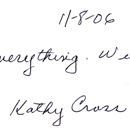 11-8-06
verything. We
Kathy Cross